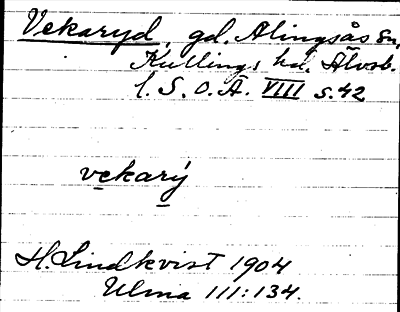 Vekaryd, gd. Alingsås sn,
Kullings hd. Älvsb.
l. S.O.Ä. VIII s.42
vekarý
H. Lindkvist 1904
Ulma 111:134.